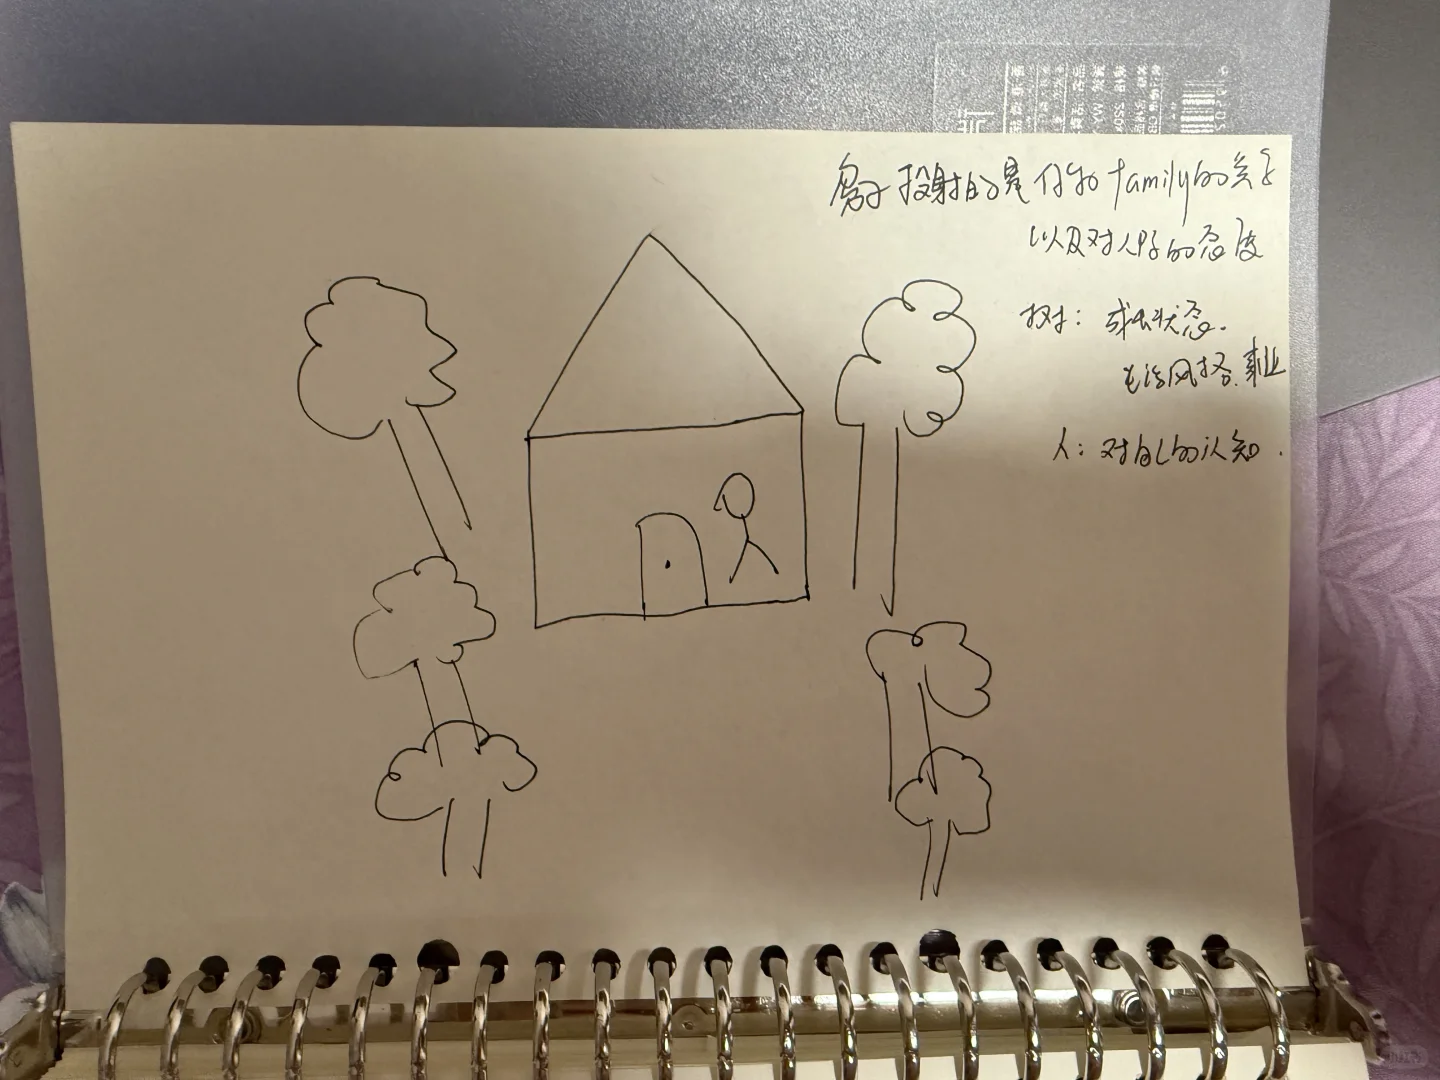 房子投射的是你和family的关系
以及对人际的态度
树：成长状态.
生活风格.事业
人：对自己的认知.